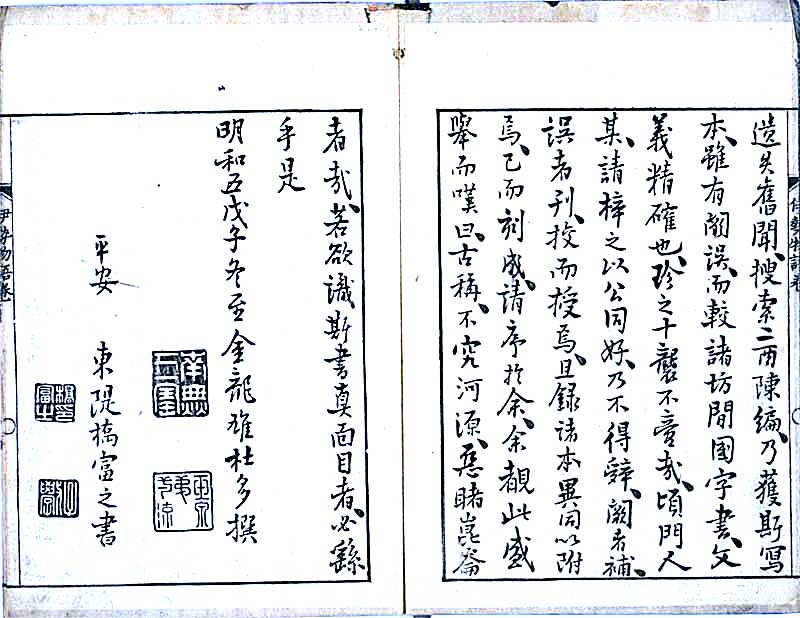 遺失舊聞搜索二酉陳編乃獲斯寫
本雖有闕誤而較諸坊間國字書文
義精確也珍之十襲不啻哉頃門人
某請梓之以公同好乃不得辭闕者補
誤者刊挍而授焉且錄諸本異同以附
焉已而刻成請序於余余覩此盛
舉而嘆曰古稱不究河源惡睹崑崙
者哉若欲識斯書真面目者必繇
乎是
明和五戊子冬至金龍雄杜多撰
平安 東隄橋富之書